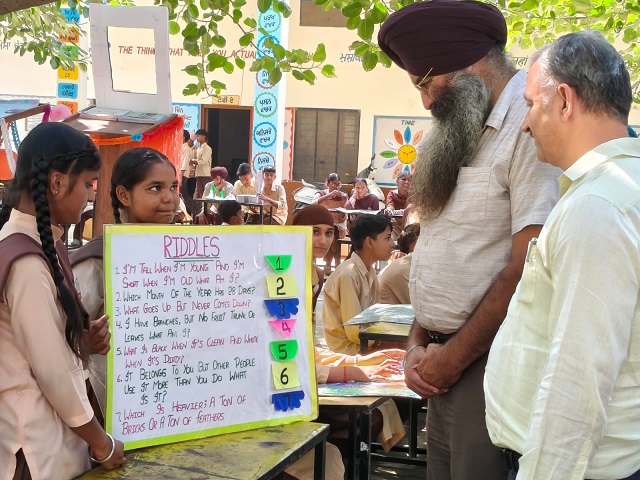 THE THING THAT YOU ACTUAL
TIME
RIDDLES
1. I'M TALL WHEN I'M YOUNG AND I'M
SHORT WHEN I'M OLD WHAT AM I?
2. WHICH MONTH OF THE YEAR HAS 28 DAYS?
3. WHAT GOES UP BUT NEVER COMES DOWN?
4. I HAVE BRANCHES, BUT NO FRUIT TRUNK OR
LEAVES WHAT AM I?
5. WHAT IS BLACK WHEN IT'S CLEAN AND WHITE
WHEN IT'S DIRTY?
6. IT BELONGS TO YOU BUT OTHER PEOPLE
USE IT MORE THAN YOU DO WHAT
IS IT?
7. WHICH IS HEAVIER: A TON OF
BRICKS OR A TON OF FEATHERS
1
2
3
4
5
6
7